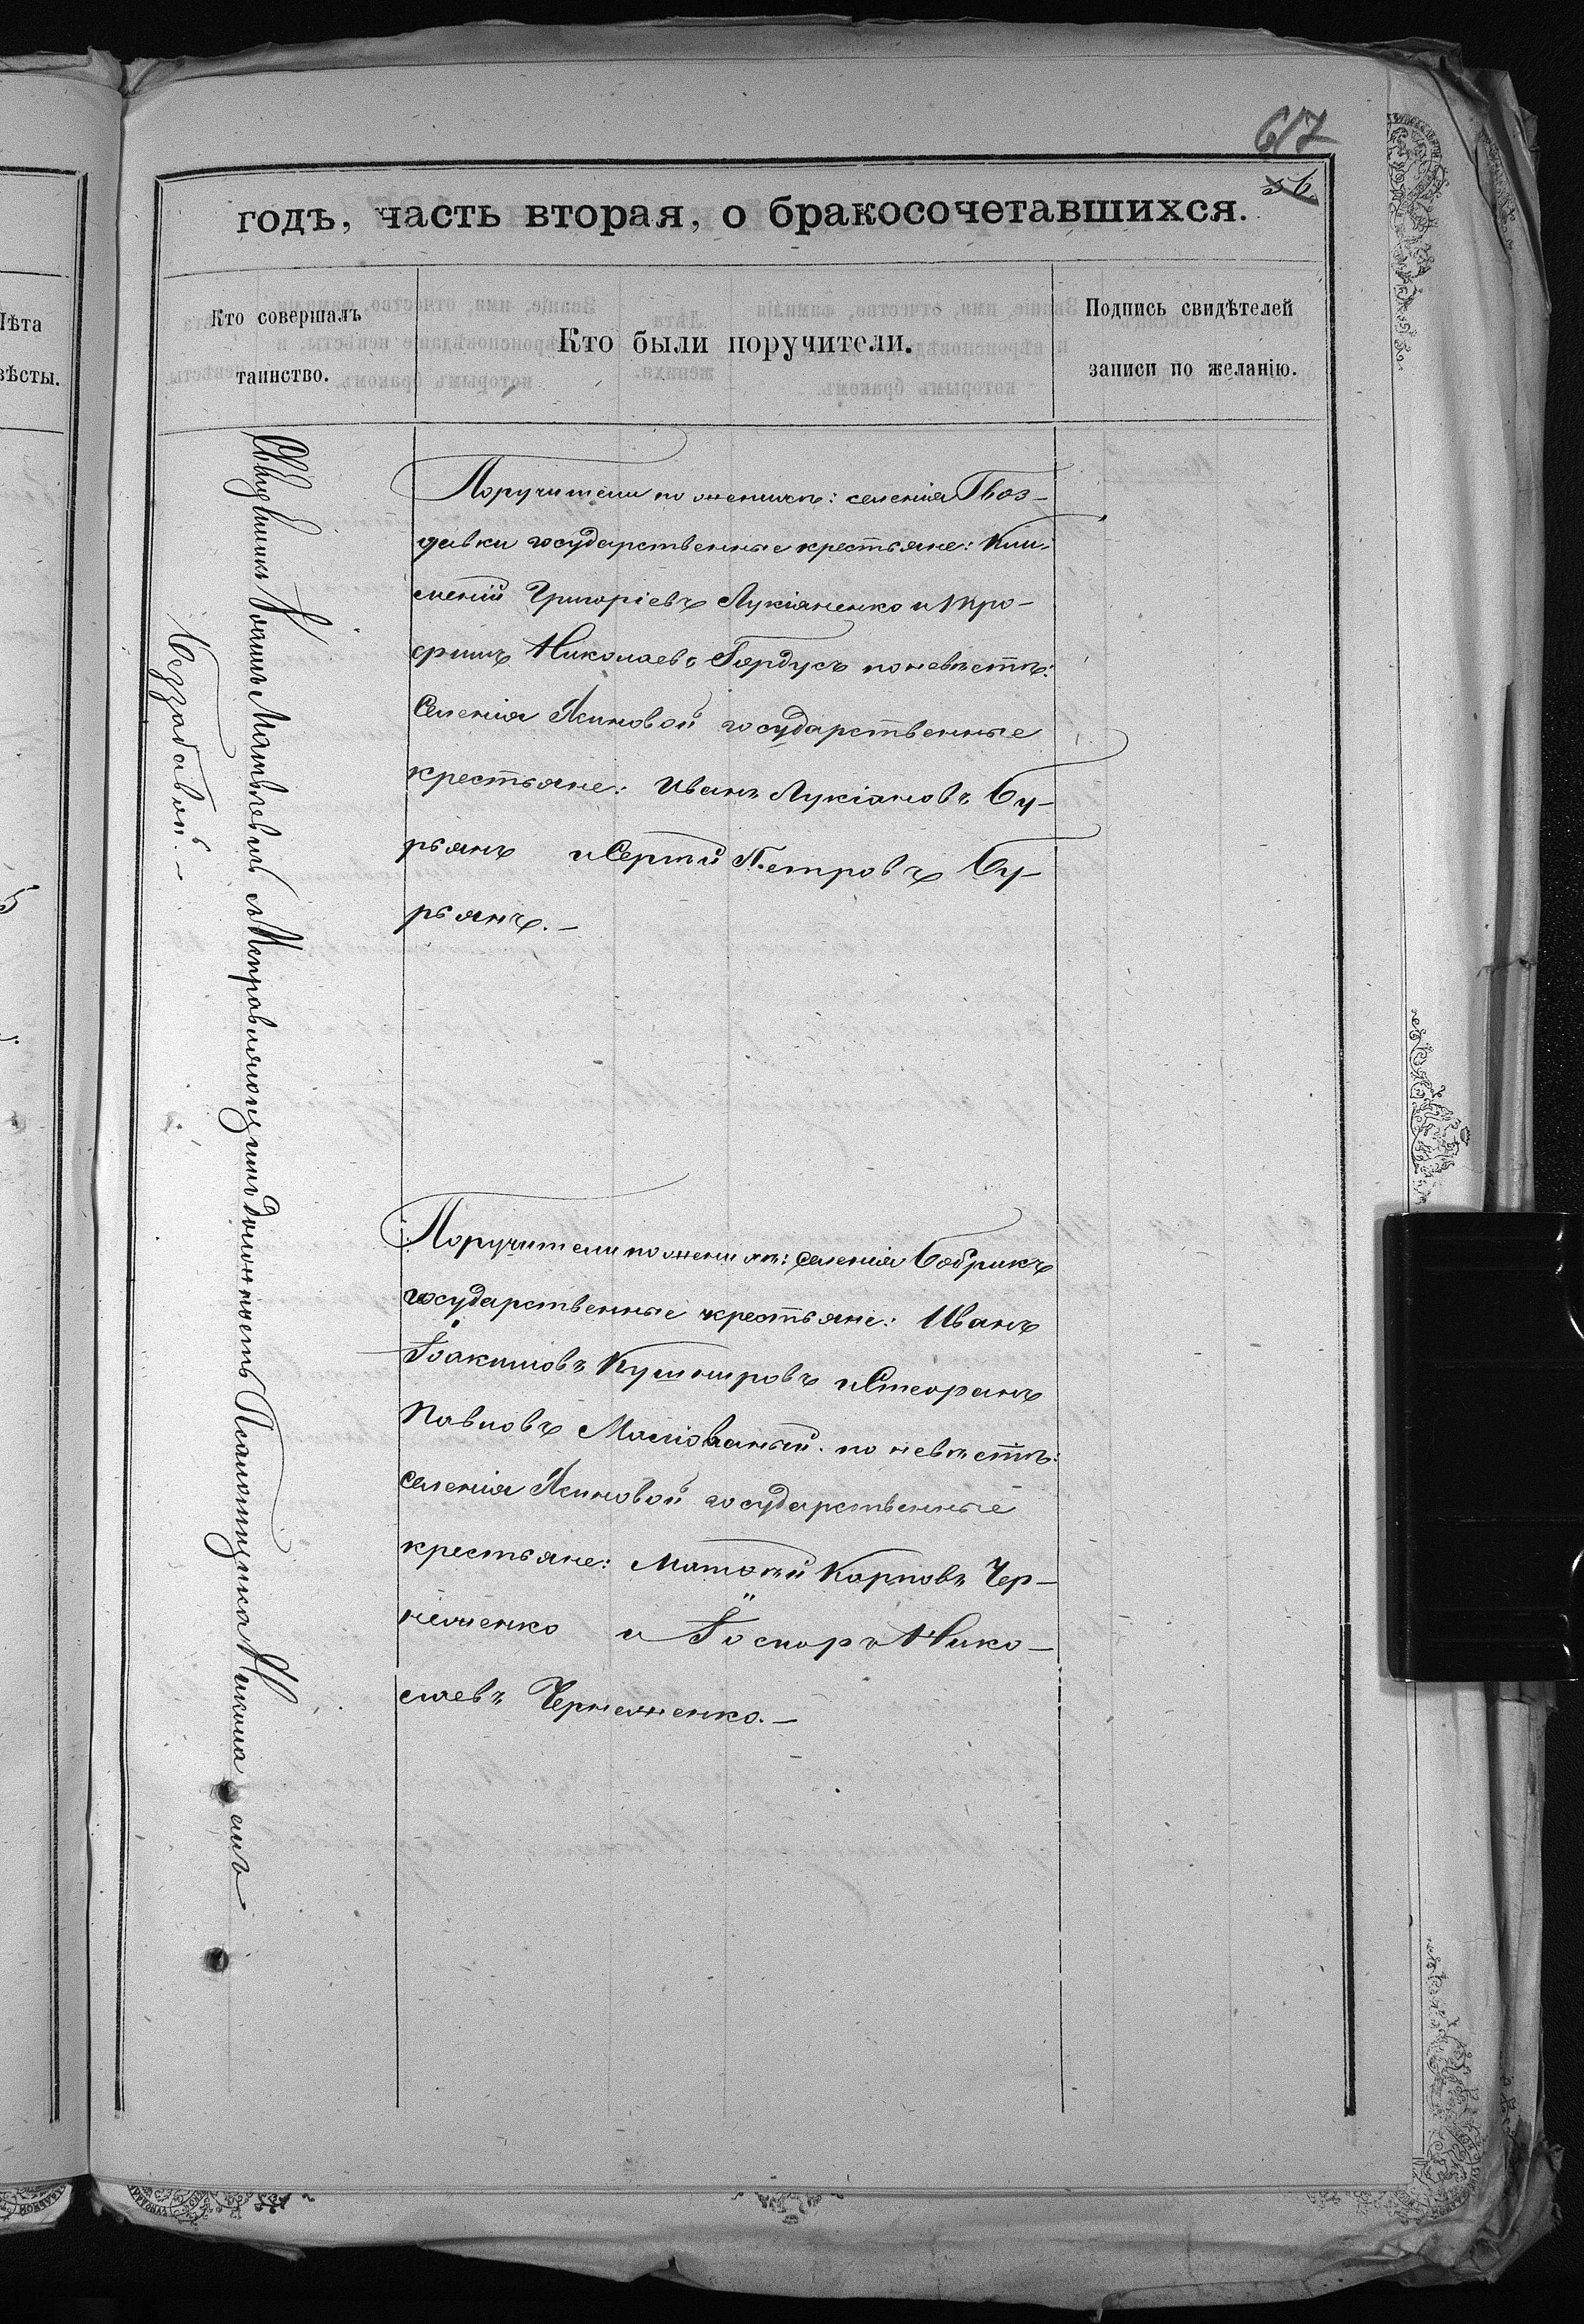 617
56
годъ, часть вторая, о бракосочетавшихся.
Кто совершалъ
таинство.
Кто были поручители.
Подпись свидѣтелей
записи по желанію.
Лѣта
вѣсты.
Священникъ Іоаннъ Матвѣевичъ съ Исправляющимъ должность Псаломщика Никола емъ
Беззабавой.-
Поручители по женихѣ: селенія Гвоз-
давки государственные крестьяне: Кли-
ментій Григоріевъ Лукіяненко и Тро-
фимъ Николаевъ Гордусъ по невѣстѣ:
Селенія Ясиновой государственные
крестьяне: Иванъ Лукіановъ Бу-
рьянъ и Сергій Петровъ Бу-
рьянъ.-
Поручители по женихѣ: селенія Бобрикъ
государственные крестьяне: Иванъ
Іоакимовъ Кушнировъ и Стефанъ
Павловъ Мальованый. по невѣстѣ:
Селенія Ясиновой государственные
крестьяне: Матѳѣй Карповъ Чер-
неженко и Іосифъ Нико-
лаевъ Чернеженко.-